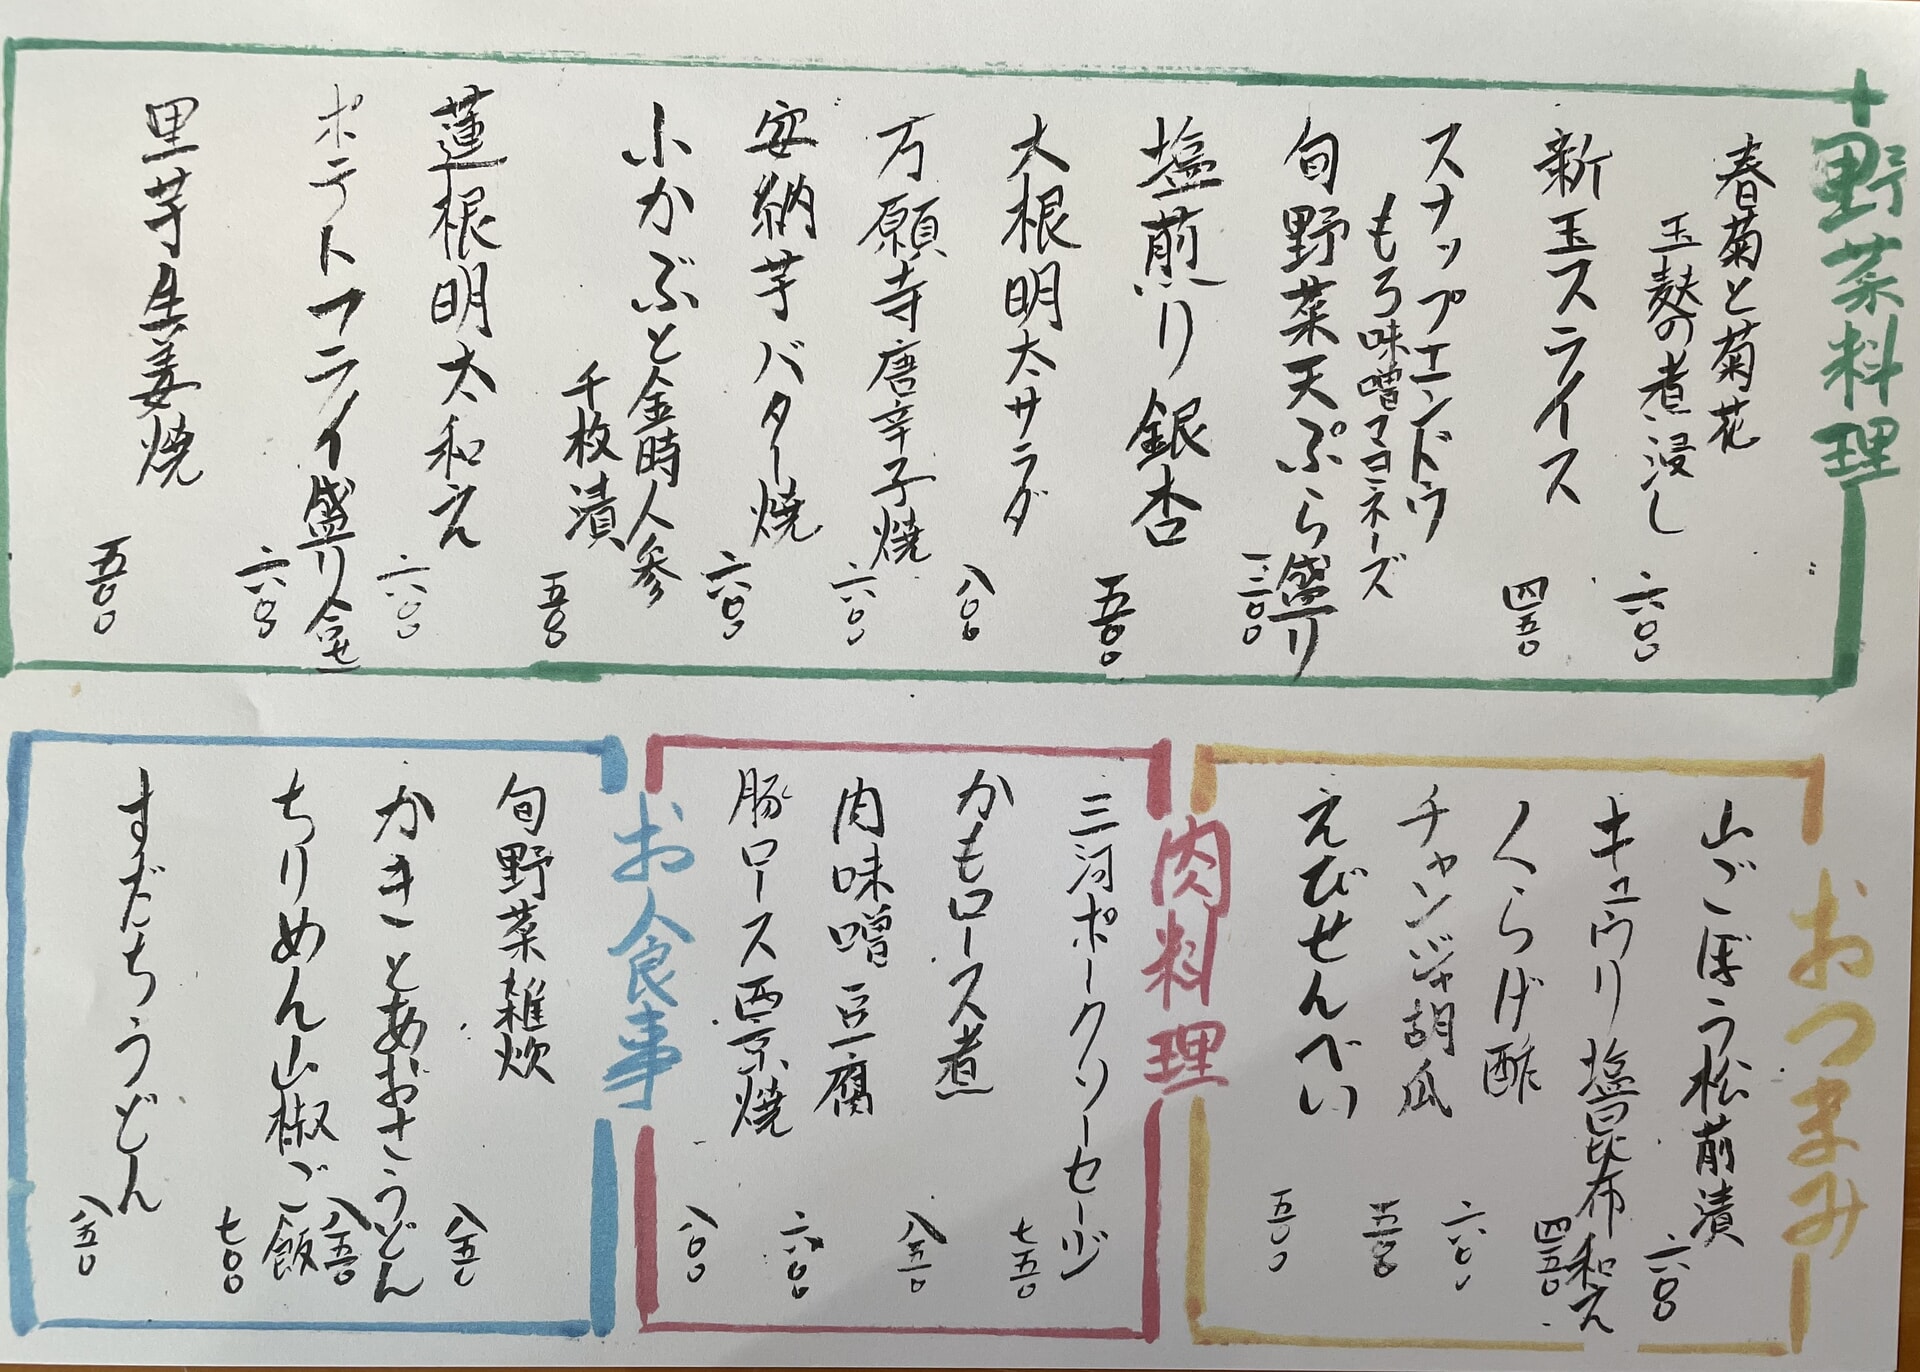 野菜料理
春菊と菊花
玉麩の煮浸し
六〇〇
新玉スライス
四五〇
スナップエンドウ
もろ味噌マヨネーズ
旬野菜天ぷら盛り
一二〇〇
塩煎り銀杏
五五〇
大根明太サラダ
八〇〇
万願寺唐辛子焼
六〇〇
安納芋バター焼
六〇〇
小かぶと金時人参
千枚漬
五五〇
蓮根明太和え
六〇〇
ポテトフライ盛り合せ
六〇〇
里芋生姜焼
五〇〇
おつまみ
山ごぼう松前漬
六〇〇
キュウリ塩昆布和え
四五〇
くらげ酢
六〇〇
チャンジャ胡瓜
五五〇
えびせんべい
五〇〇
肉料理
三河ポークソーセージ
七五〇
かもロース煮
八五〇
肉味噌豆腐
六〇〇
豚ロース西京焼
八〇〇
お食事
旬野菜雑炊
八五〇
かきとあおさうどん
八五〇
ちりめん山椒ご飯
七〇〇
すだちうどん
八五〇